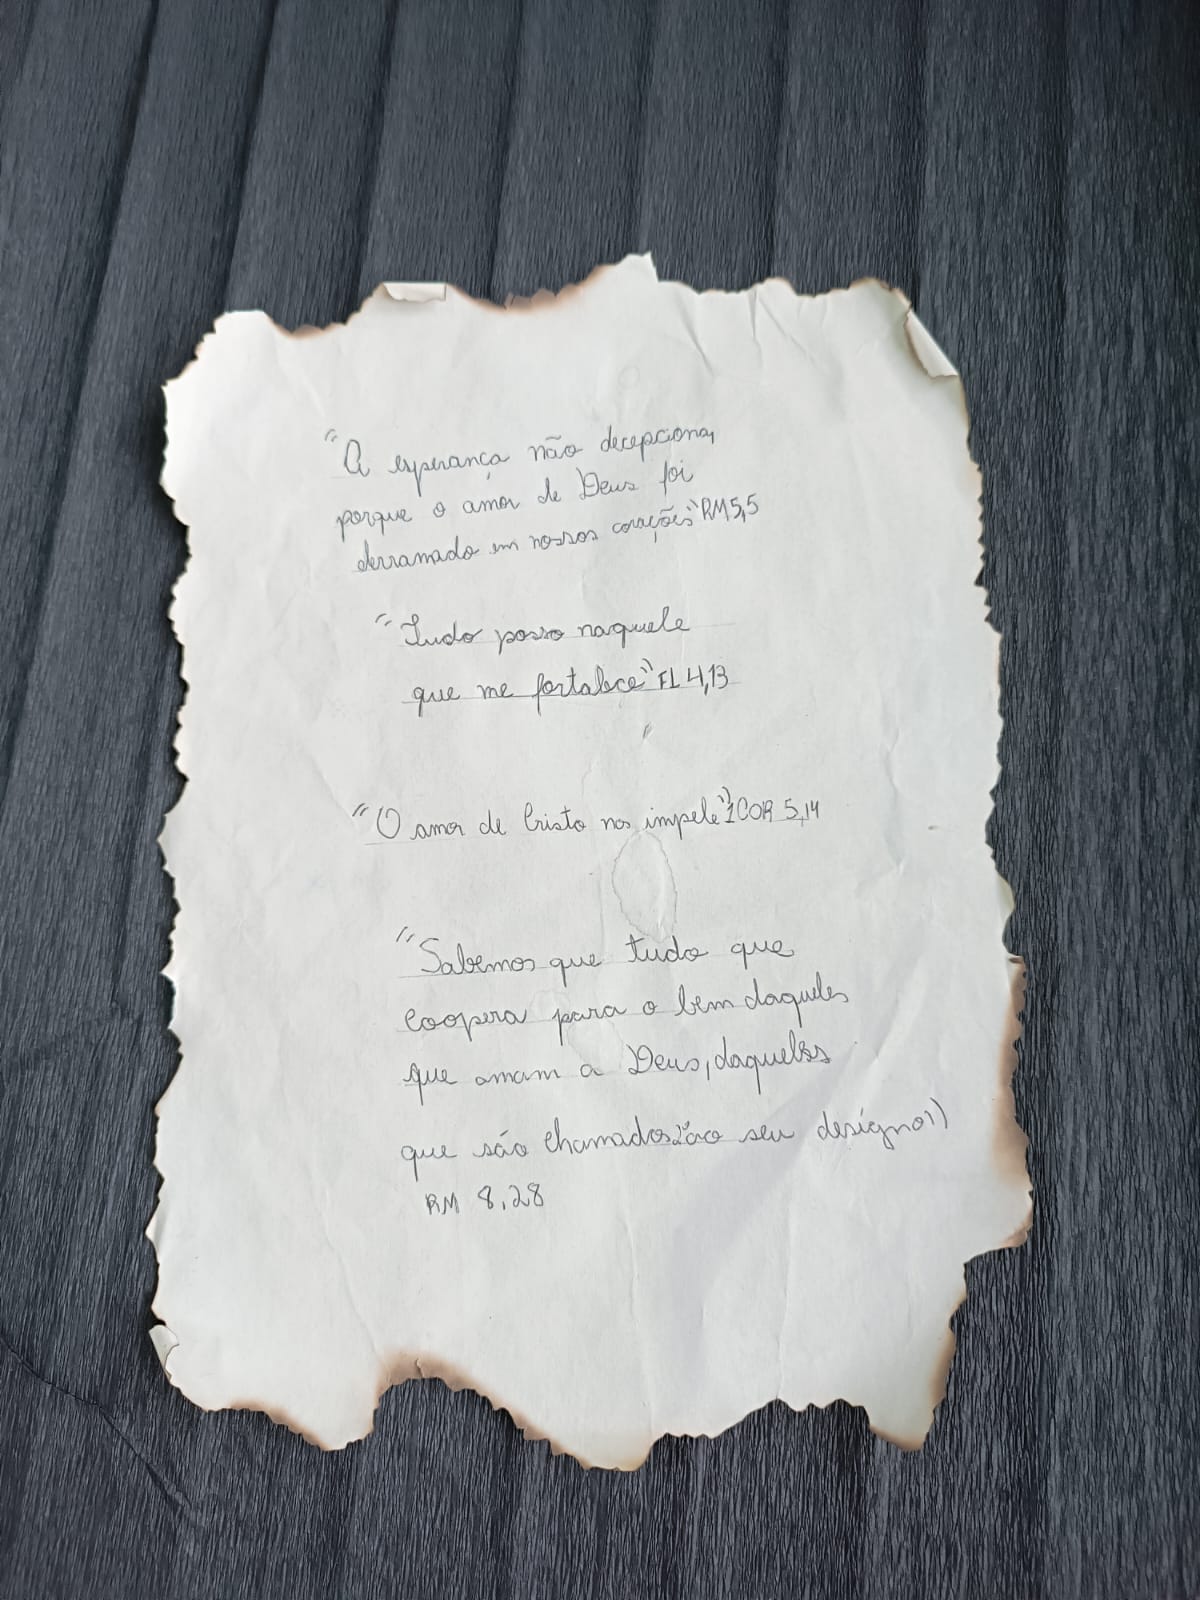 "A esperança não decepciona,
porque o amor de Deus foi
derramado em nossos corações" RM 5,5
"Tudo posso naquele
que me fortalece" FL 4,13
"O amor de Cristo nos impele" 1COR 5,14
"Sabemos que tudo que
coopera para o bem daqueles
que amam a Deus, daqueles
que são chamados ao seu desígno"
RM 8,28